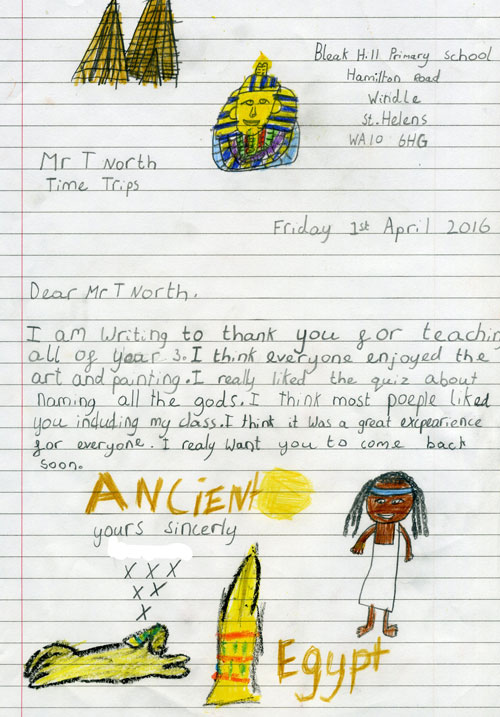 Bleak Hill Primary school
Hamilton Road
Windle
St. Helens
WA10 6HG
Mr T North
Time Trips
Friday 1st April 2016
Dear Mr T North.
I am writing to thank you for teachin
all of year 3. I think everyone enjoyed the
art and painting. I really liked the quiz about
naming all the gods. I think most poeple liked
you including my class. I think it was a great excpearience
for everyone. I realy want you to come back
soon.
ANCiENt
yours sincerly
X X X
X X
X
Egypt